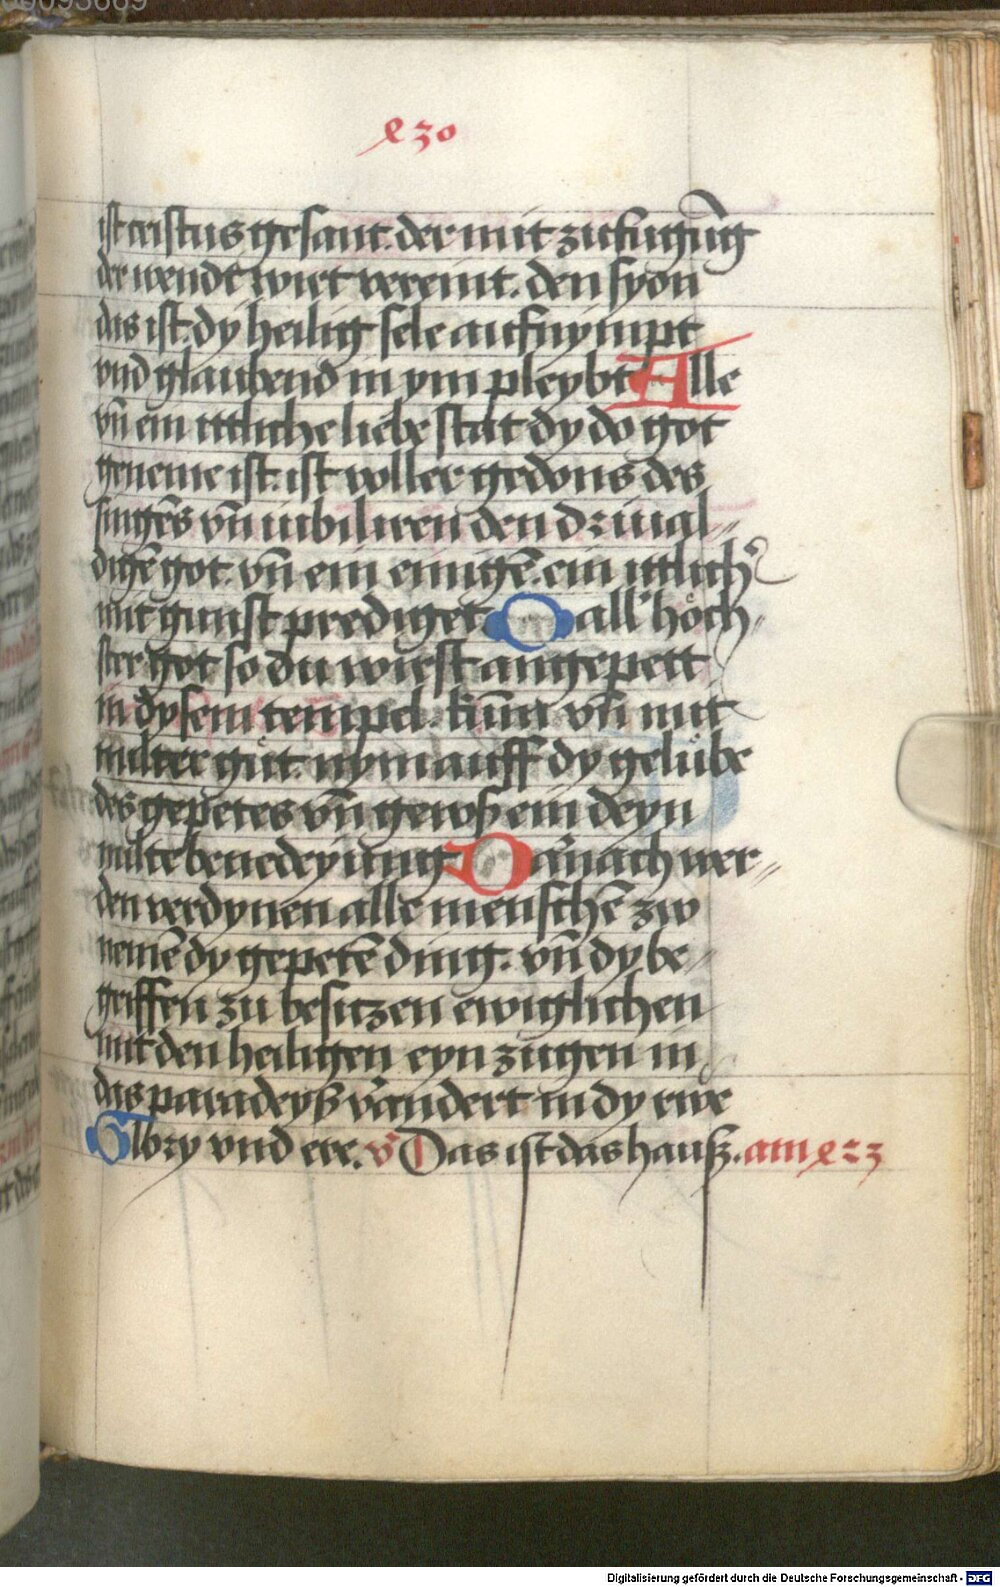 00093669
ł30
ist cristus gesant. der mit zufugūg
der wendt wirt vereint. den syon
das ist. dy heilig sele aufnympt
vnd glaubend in ym pleybt Alle
vn̄ ein ittliche liebe stat dy do got
geneme ist. ist voller gedons des
singēs vn̄ iubiliren den driual„
digē got. vn̄ ein einigē. ein ittlich᷑
mit gunst prediget O all᷑ höch„
ster got so du wirst angepett
in dysem tempel. kum̄ vn̄ mit
milter güt. nym auff dy gelübe
des gepetes vn̄ gewß ein deyn
milte benedeyung Darnach wer„
den verdynen alle menschē zw
nemē dy gepetē ding. vn̄ dy be„
griffen zu besitzen ewiglichen
mit den heiligen eyn zugen in
das paradeyß v᷑andert in dy rwe
Glory vnd ere. v᷑ Das ist das hauß. am ł23
Digitalisierung gefördert durch die Deutsche Forschungsgemeinschaft - DFG